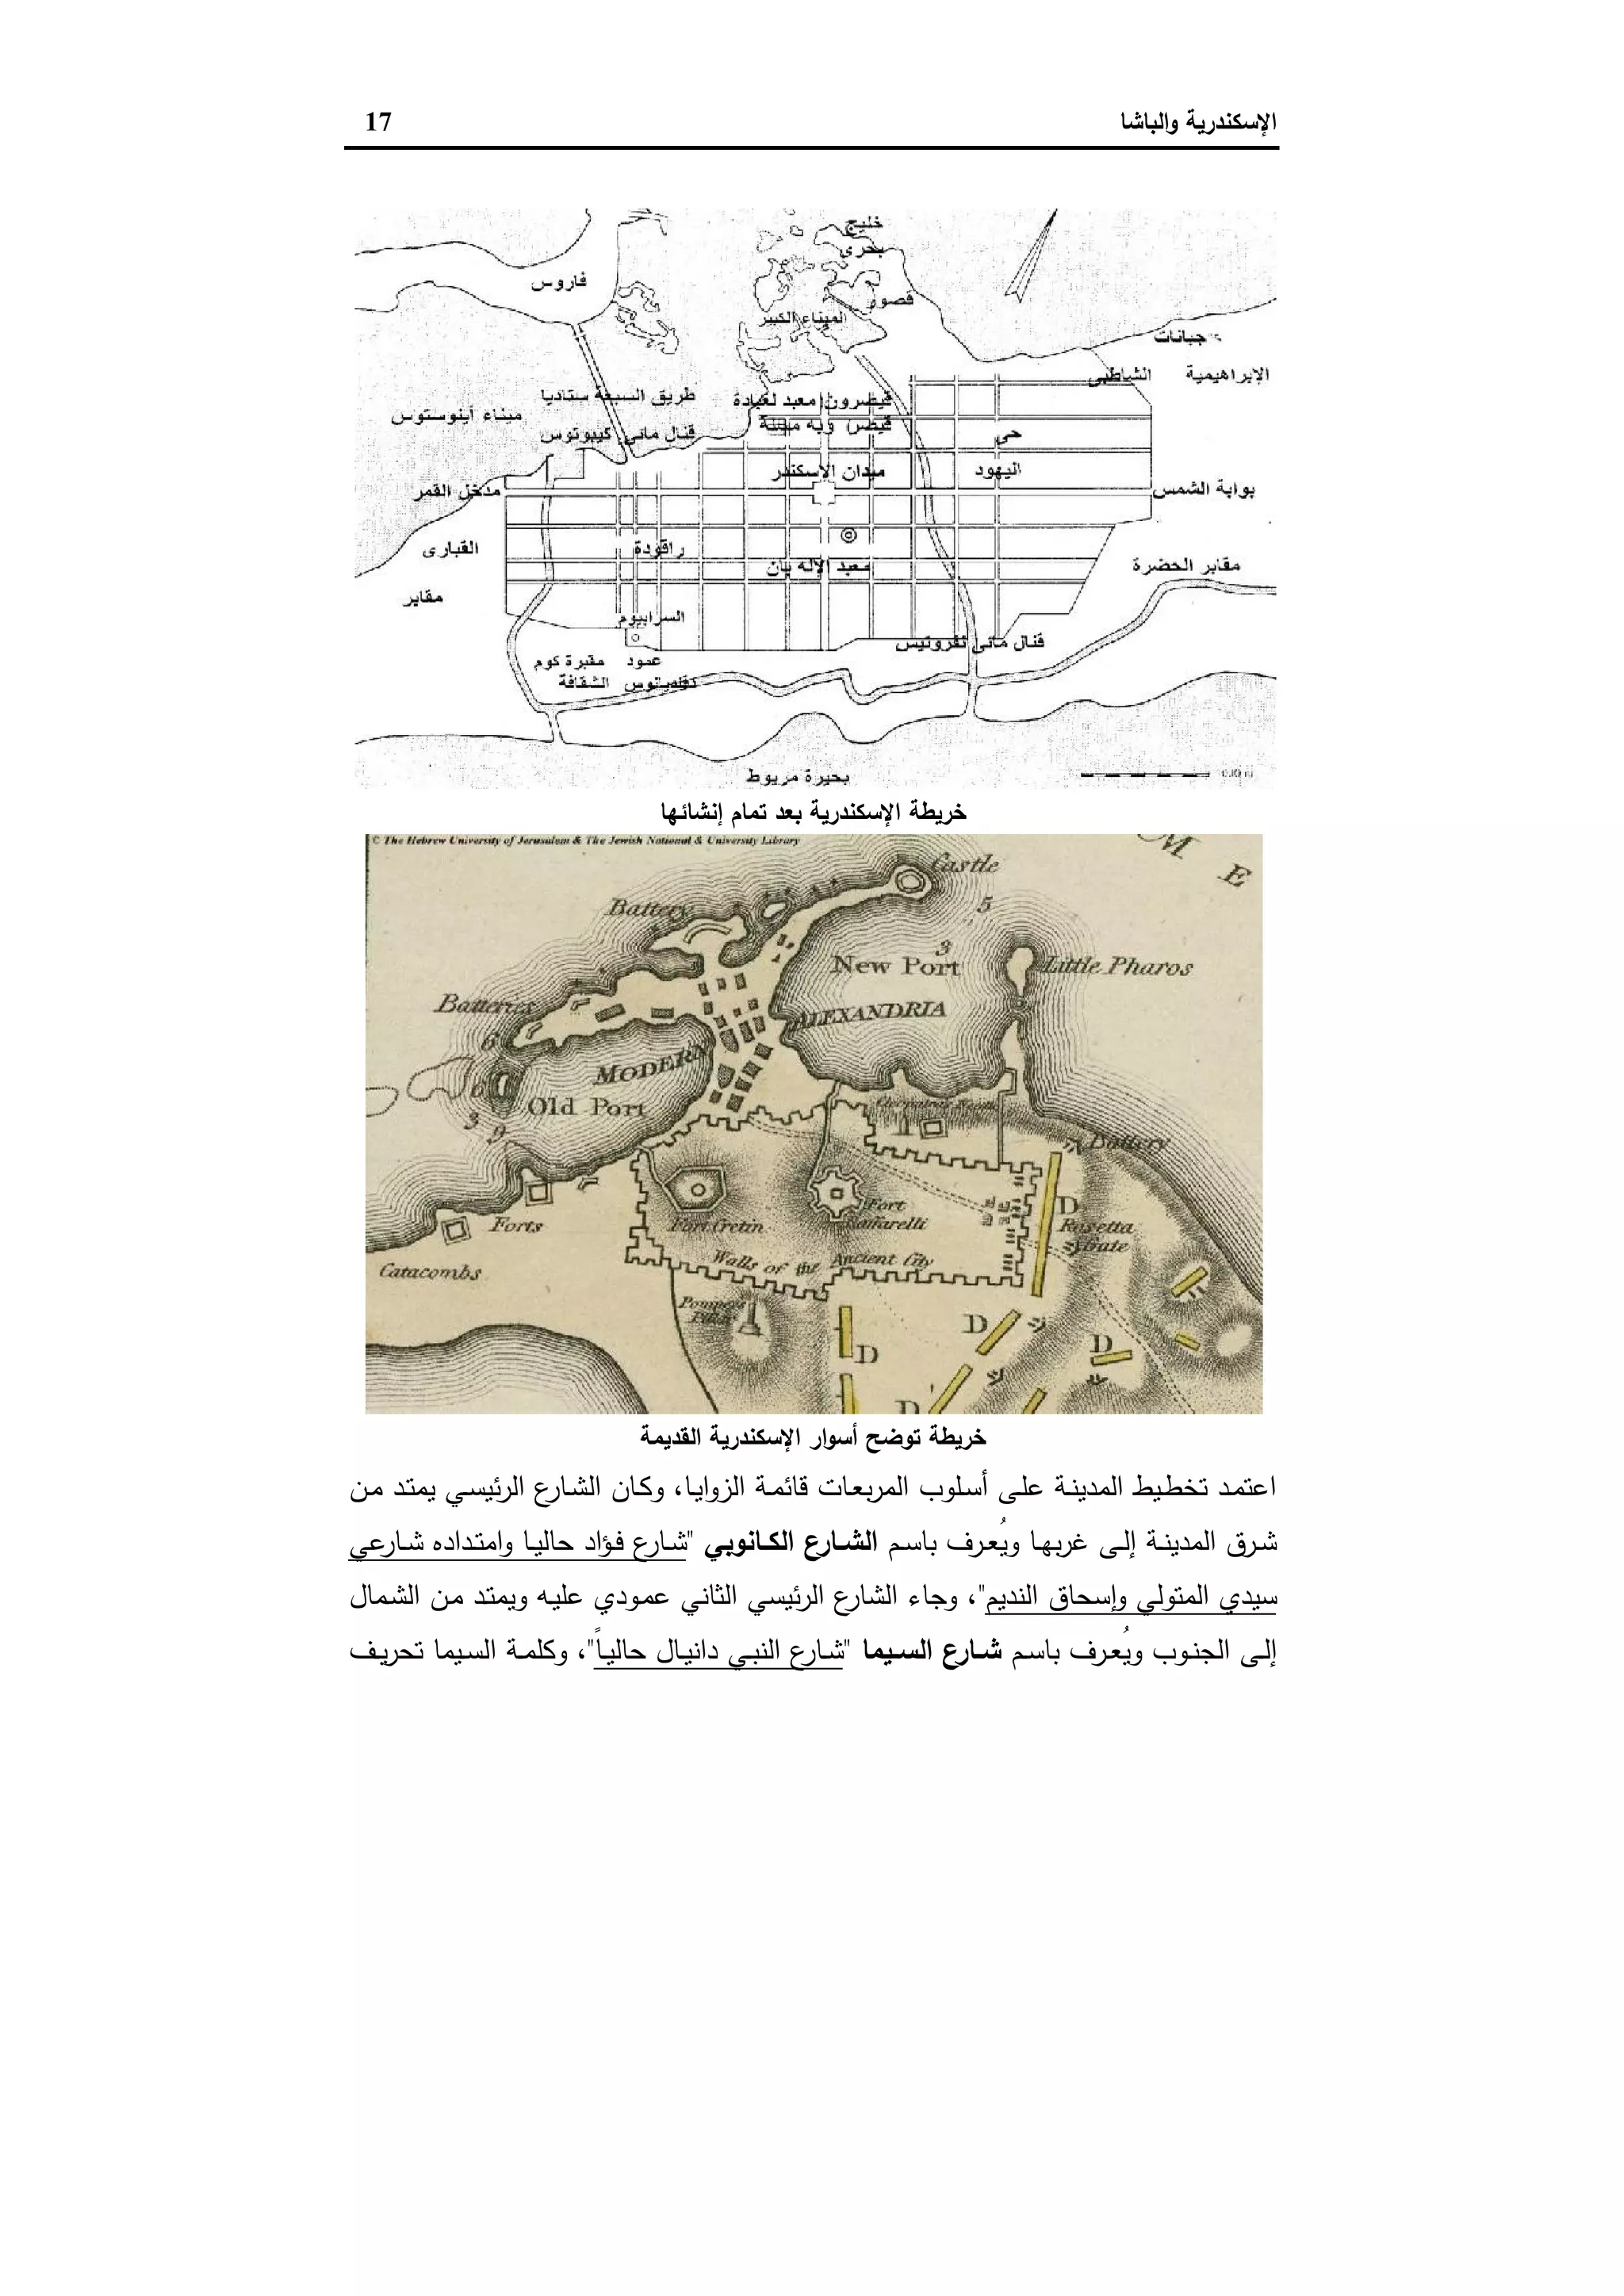 الإسكندرية والباشا 17
خليج
بحرى
فاروس
قصور
الميناء الكبير
جبانات
الإبراهيمية الشاطبى
طريق السبعة ستاديا
قيصرون معبد لعبادة
ميناء أينوستوس
قيصر وبه
قنال مائى كيبوتوس
حى
ميدان الاسكندر
اليهود
مدخل القمر
بوابة الشمس
القبارى
راقودة
معبد الإله بان
مقابر الحضرة
مقابر
السرابيوم
قنال مائى
عمود مقبرة كوم
الشقافة
بحيرة مريوط
خريطة الإسكندرية بعد تمام إنشائها
© The Hebrew University of Jerusalem & The Jewish National & University Library
M E
Castle
Battery
5
3
New Port
Little Pharos
Batteries
ALEXANDRIA
6
MODERN
6
Old Port
3 9
Battery
D
Forts
Fort Cretin
Fort Caffarelli
Rosetta Gate
Walls of the Ancient City
Catacombs
Pompeys Pillar
D
D
D
D
خريطة توضح أسوار الإسكندرية القديمة
اعتمد تخطيط المدينة على أسلوب المربعات قائمة الزوايا، وكان الشارع الرئيسي يمتد من
شرق المدينة إلى غربها ويُعرف باسم الشارع الكانوبي "شارع فؤاد حاليا وامتداده شارعي
سيدي المتولي وإسحاق النديم"، وجاء الشارع الرئيسي الثاني عمودي عليه ويمتد من الشمال
إلى الجنوب ويُعرف باسم شارع السيما "شارع النبي دانيال حالياً"، وكلمة السيما تحريف